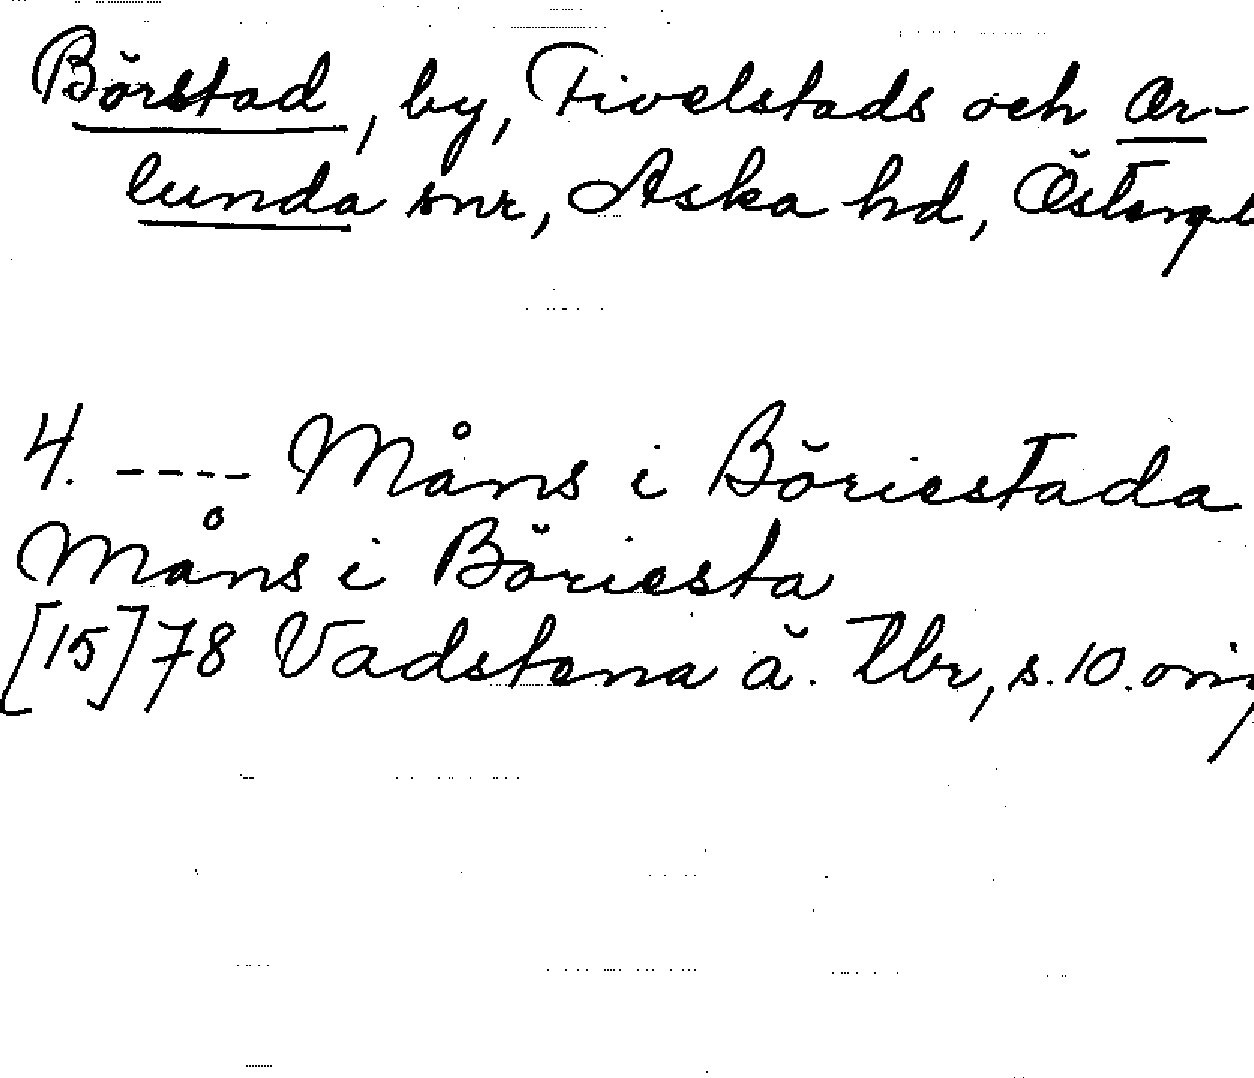 Börstad, by, Fivelstads och Or-
lunda snr, Aska hd, Östergöt
4. ---- Måns i Böriestada
Måns i Böriesta
[15]78 Vadstena ä. Tbr, s. 10. orig